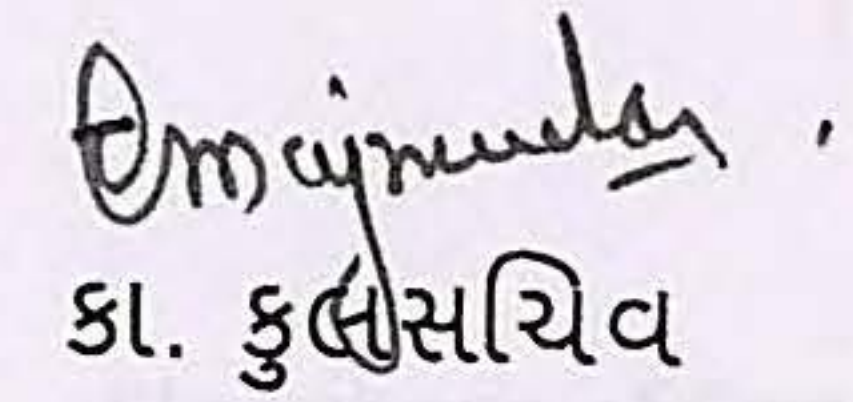 Cmajmudar.
કા. કુલસચિવ